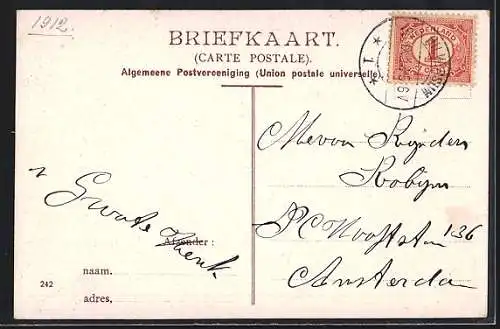 1912.
BRIEFKAART.
(CARTE POSTALE).
Algemeene Postvereeniging (Union postale universelle)
NEDERLAND
1
Mevrou Rijnders
Robijn
PC Hooftstr 136
Amsterdam
Groote Henk
Afzender:
naam.
adres,
242